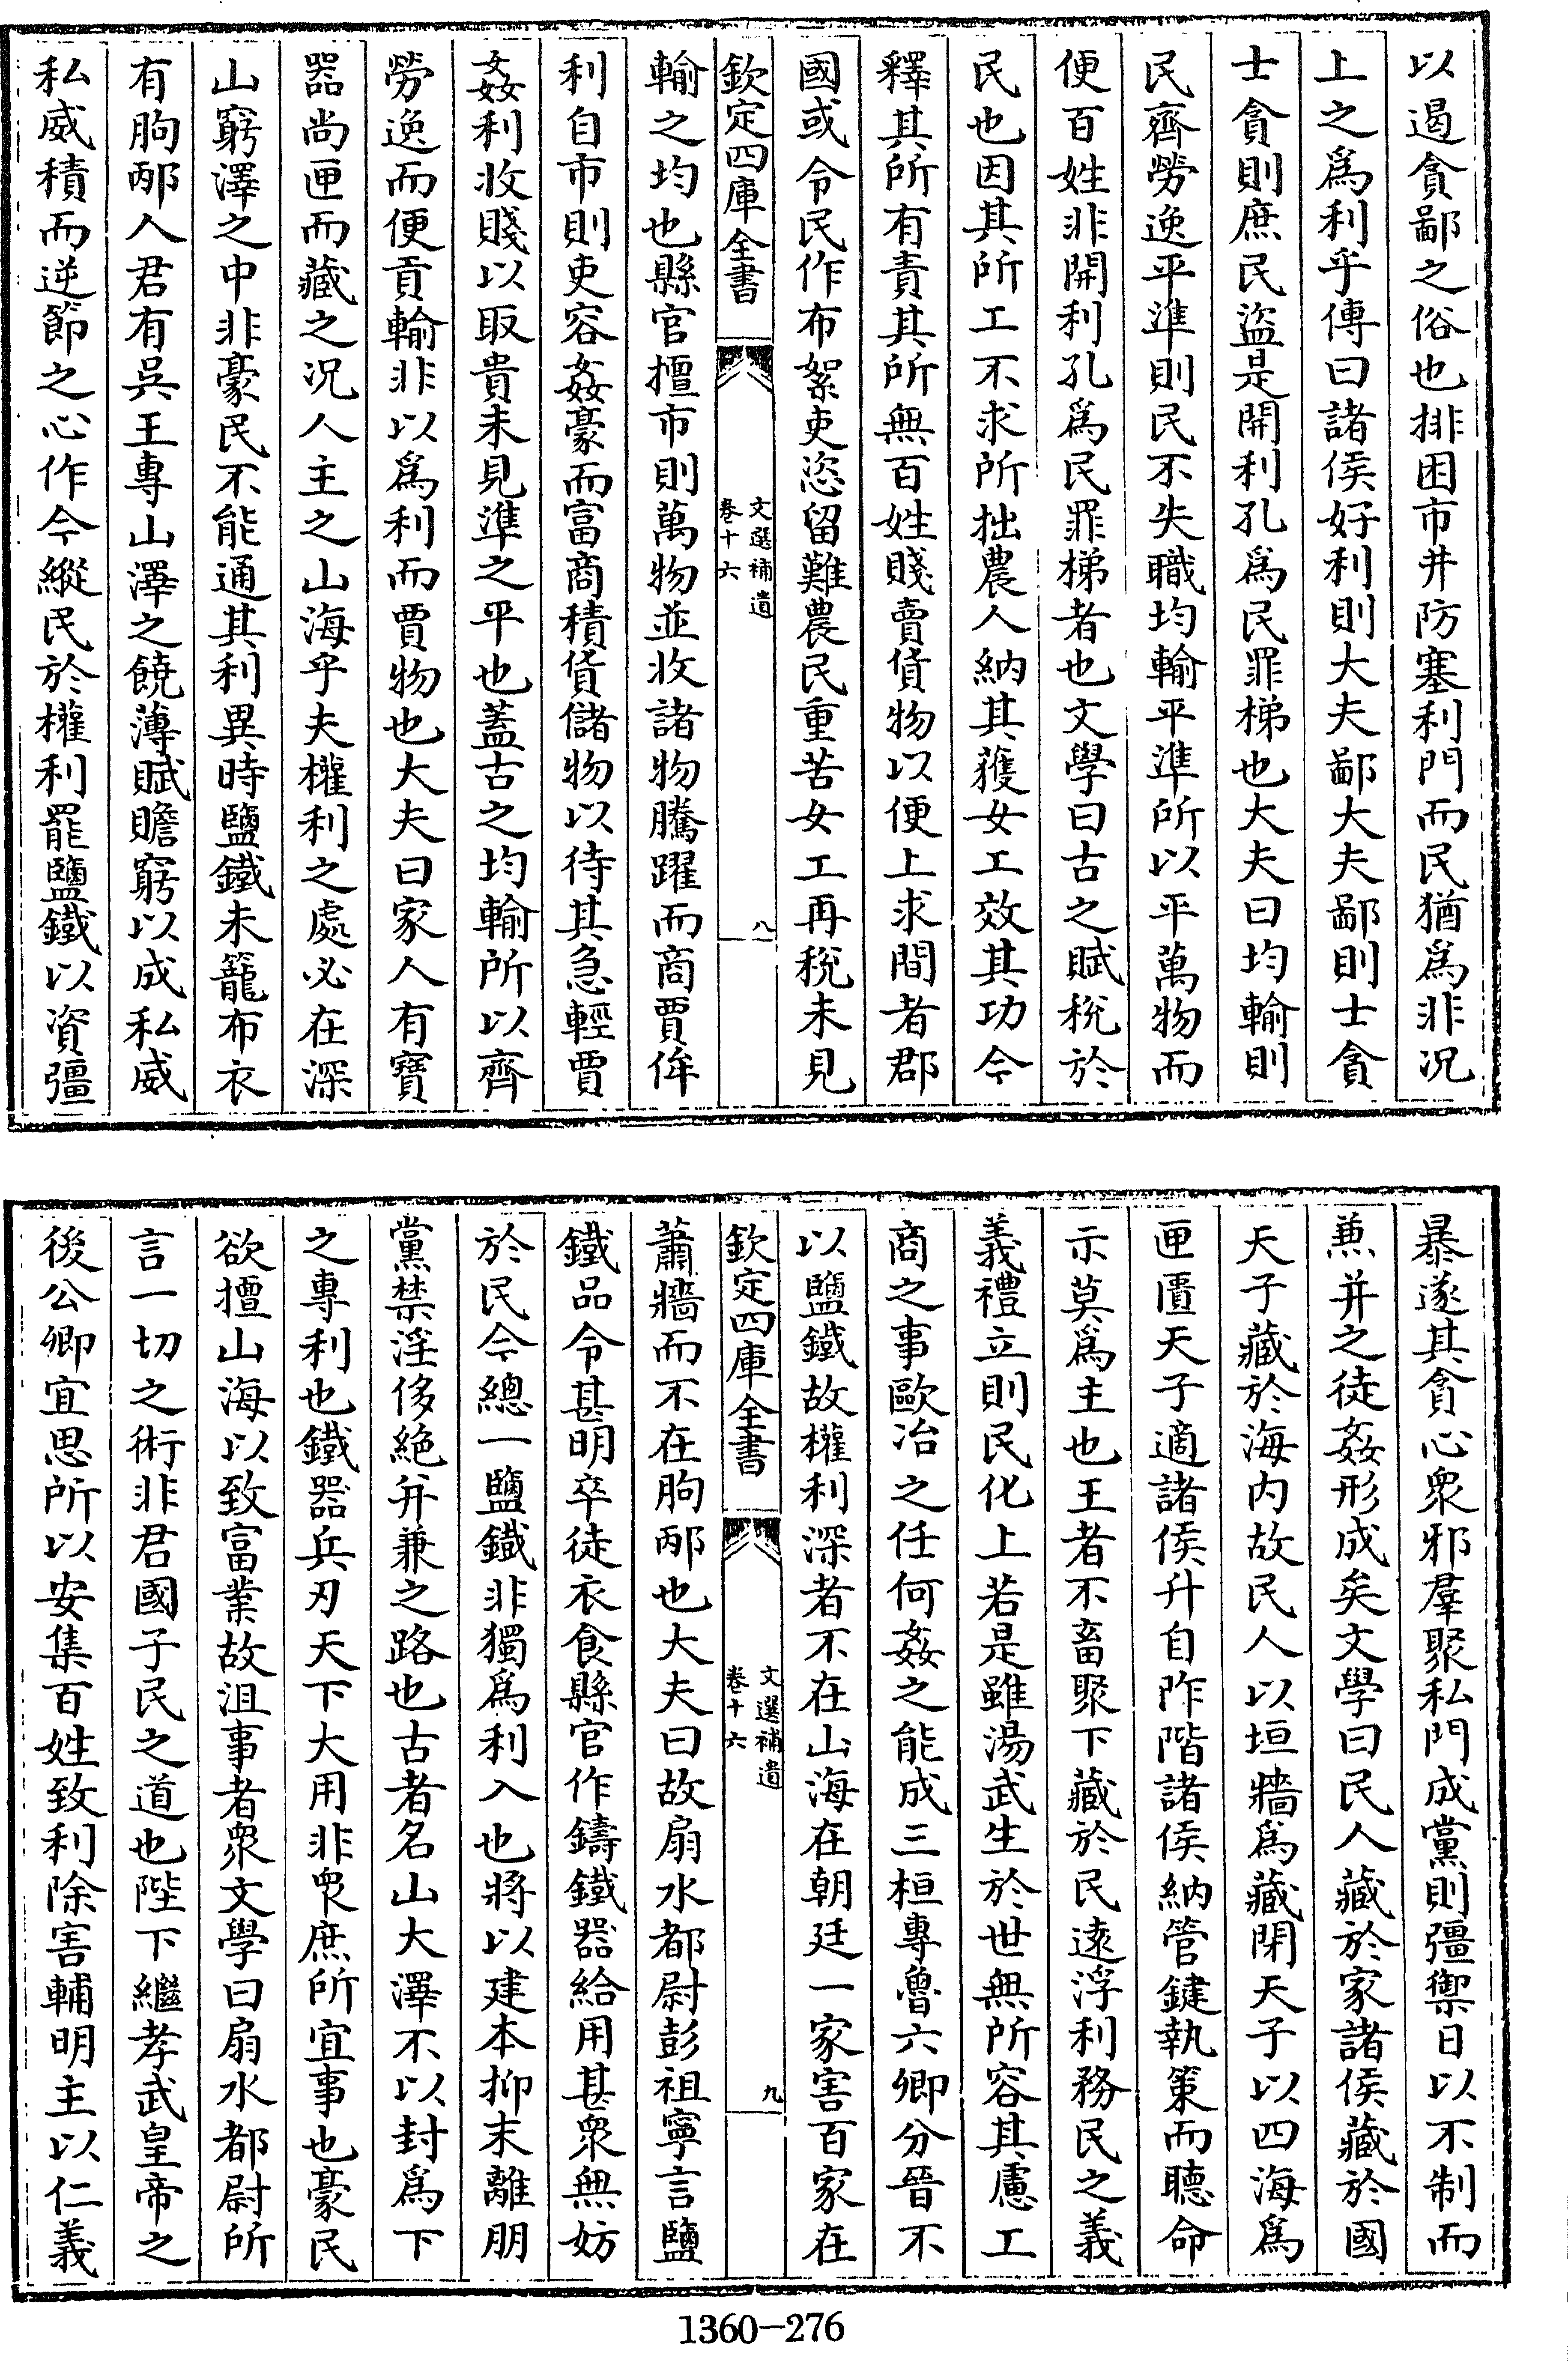 以遏貪鄙之俗也排困市井防塞利門而民猶爲非况
上之爲利乎傳曰諸侯好利則大夫鄙大夫鄙則士貪
士貪則庶民盜是開利孔爲民罪梯也大夫曰均輸則
民齊勞逸平準則民不失職均輸平準所以平萬物而
便百姓非開利孔爲民罪梯者也文學曰古之賦稅於
民也因其所工不求所拙農人納其穫女工效其功今
釋其所有責其所無百姓賤賣貨物以便上求間者郡
國或令民作布絮吏恣留難農民重苦女工再稅未見
欽定四庫全書
文選補遺
卷十六
八
輸之均也縣官擅市則萬物並收諸物騰躍而商賈侔
利自市則吏容姦豪而富商積貨儲物以待其急輕賈
姦利收賤以取貴未見準之平也蓋古之均輸所以齊
勞逸而便貢輸非以爲利而賈物也大夫曰家人有寶
器尚匣而藏之况人主之山海乎夫權利之處必在深
山窮澤之中非豪民不能通其利異時鹽鐵未籠布衣
有朐邴人君有吳王專山澤之饒薄賦贍窮以成私威
私威積而逆節之心作今縱民於權利罷鹽鐵以資彊
暴遂其貪心衆邪羣聚私門成黨則彊禦日以不制而
兼并之徒姦形成矣文學曰民人藏於家諸侯藏於國
天子藏於海内故民人以垣牆爲藏閉天子以四海爲
匣匱天子適諸侯升自阼階諸侯納管鍵執策而聽命
示莫爲主也王者不畜聚下藏於民遠浮利務民之義
義禮立則民化上若是雖湯武生於世無所容其慮工
商之事歐冶之任何姦之能成三桓專魯六卿分晉不
以鹽鐵故權利深者不在山海在朝廷一家害百家在
欽定四庫全書
文選補遺
卷十六
九
蕭牆而不在朐邴也大夫曰故扇水都尉彭祖寧言鹽
鐵品令甚明卒徒衣食縣官作鑄鐵器給用甚衆無妨
於民今總一鹽鐵非獨爲利入也將以建本抑末離朋
黨禁淫侈絶并兼之路也古者名山大澤不以封爲下
之專利也鐵器兵刃天下大用非衆庶所宜事也豪民
欲擅山海以致富業故沮事者衆文學曰扇水都尉所
言一切之術非君國子民之道也陛下繼孝武皇帝之
後公卿宜思所以安集百姓致利除害輔明主以仁義
1360-276